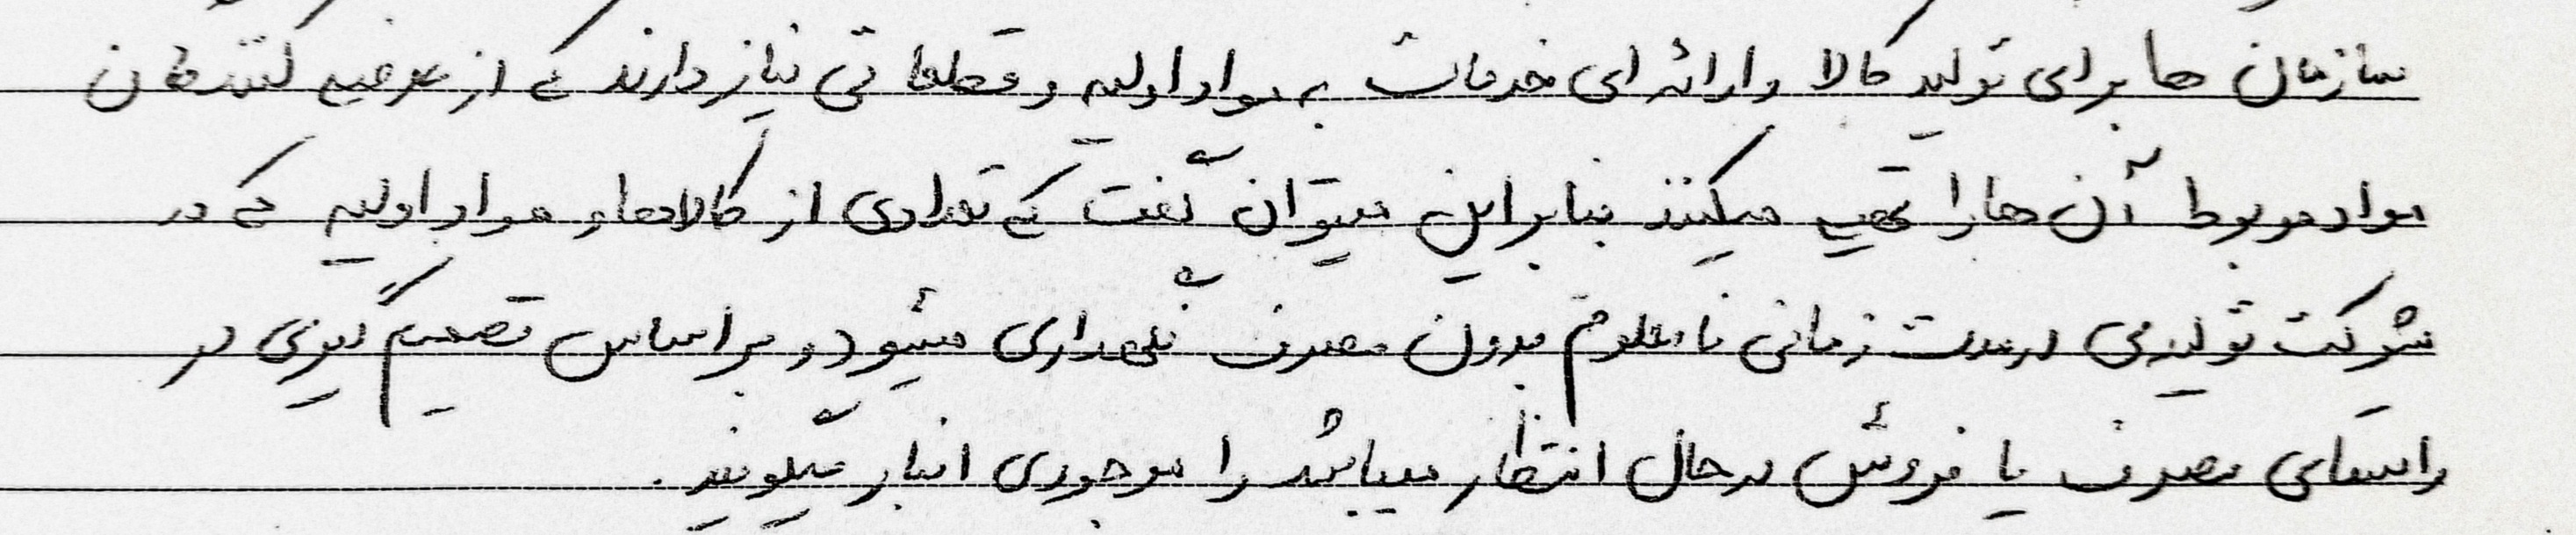 سازمان ها برای تولید کالا و ارائه ای خدمات به مواد اولیه و قطعاتی نیاز دارند که از عرضه کنندگان
مواد مربوط آن ها را تهیه میکنند بنابراین میتوان گفت که تعدادی از کالاها و مواد اولیه که در
شرکت تولیدی در مدت زمانی نامعلوم بدون مصرف نگهداری میشود و بر اساس تصمیم گیری در
راستای مصرف یا فروش در حال انتظار میباشد را موجودی انبار میگویند.